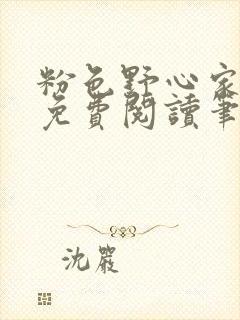 粉色野心家
免費閱讀筆
沈嚴